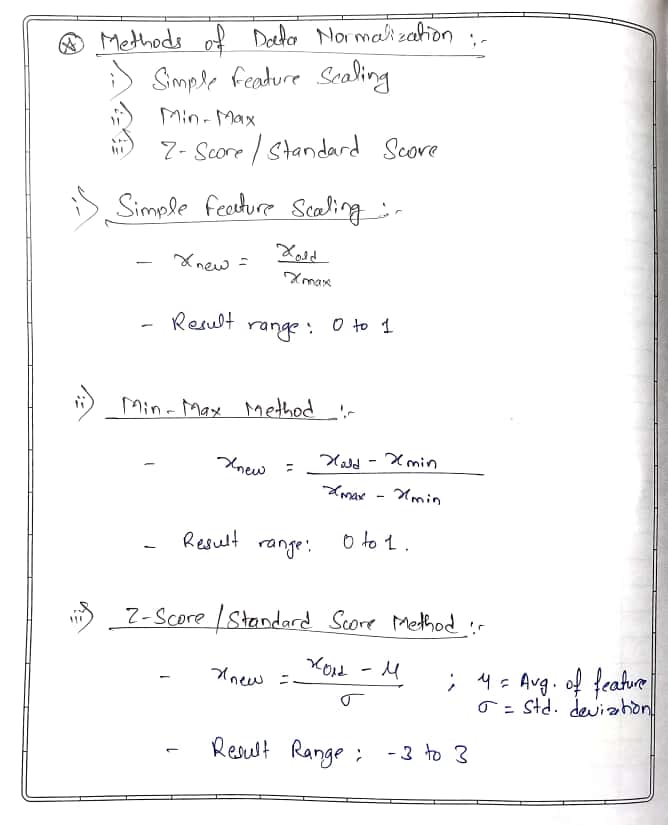 Methods of Data Normalization :-
i) Simple Feature Scaling
ii) Min-Max
iii) Z-Score / Standard Score
i) Simple Feature Scaling :-
- x new = x old / x max
- Result range : 0 to 1
ii) Min-Max Method :-
- x new = x old - x min / x max - x min
- Result range : 0 to 1.
iii) Z-Score / Standard Score Method :-
- x new = x old - μ / σ ; μ = Avg. of feature
σ = Std. deviation
- Result Range : -3 to 3